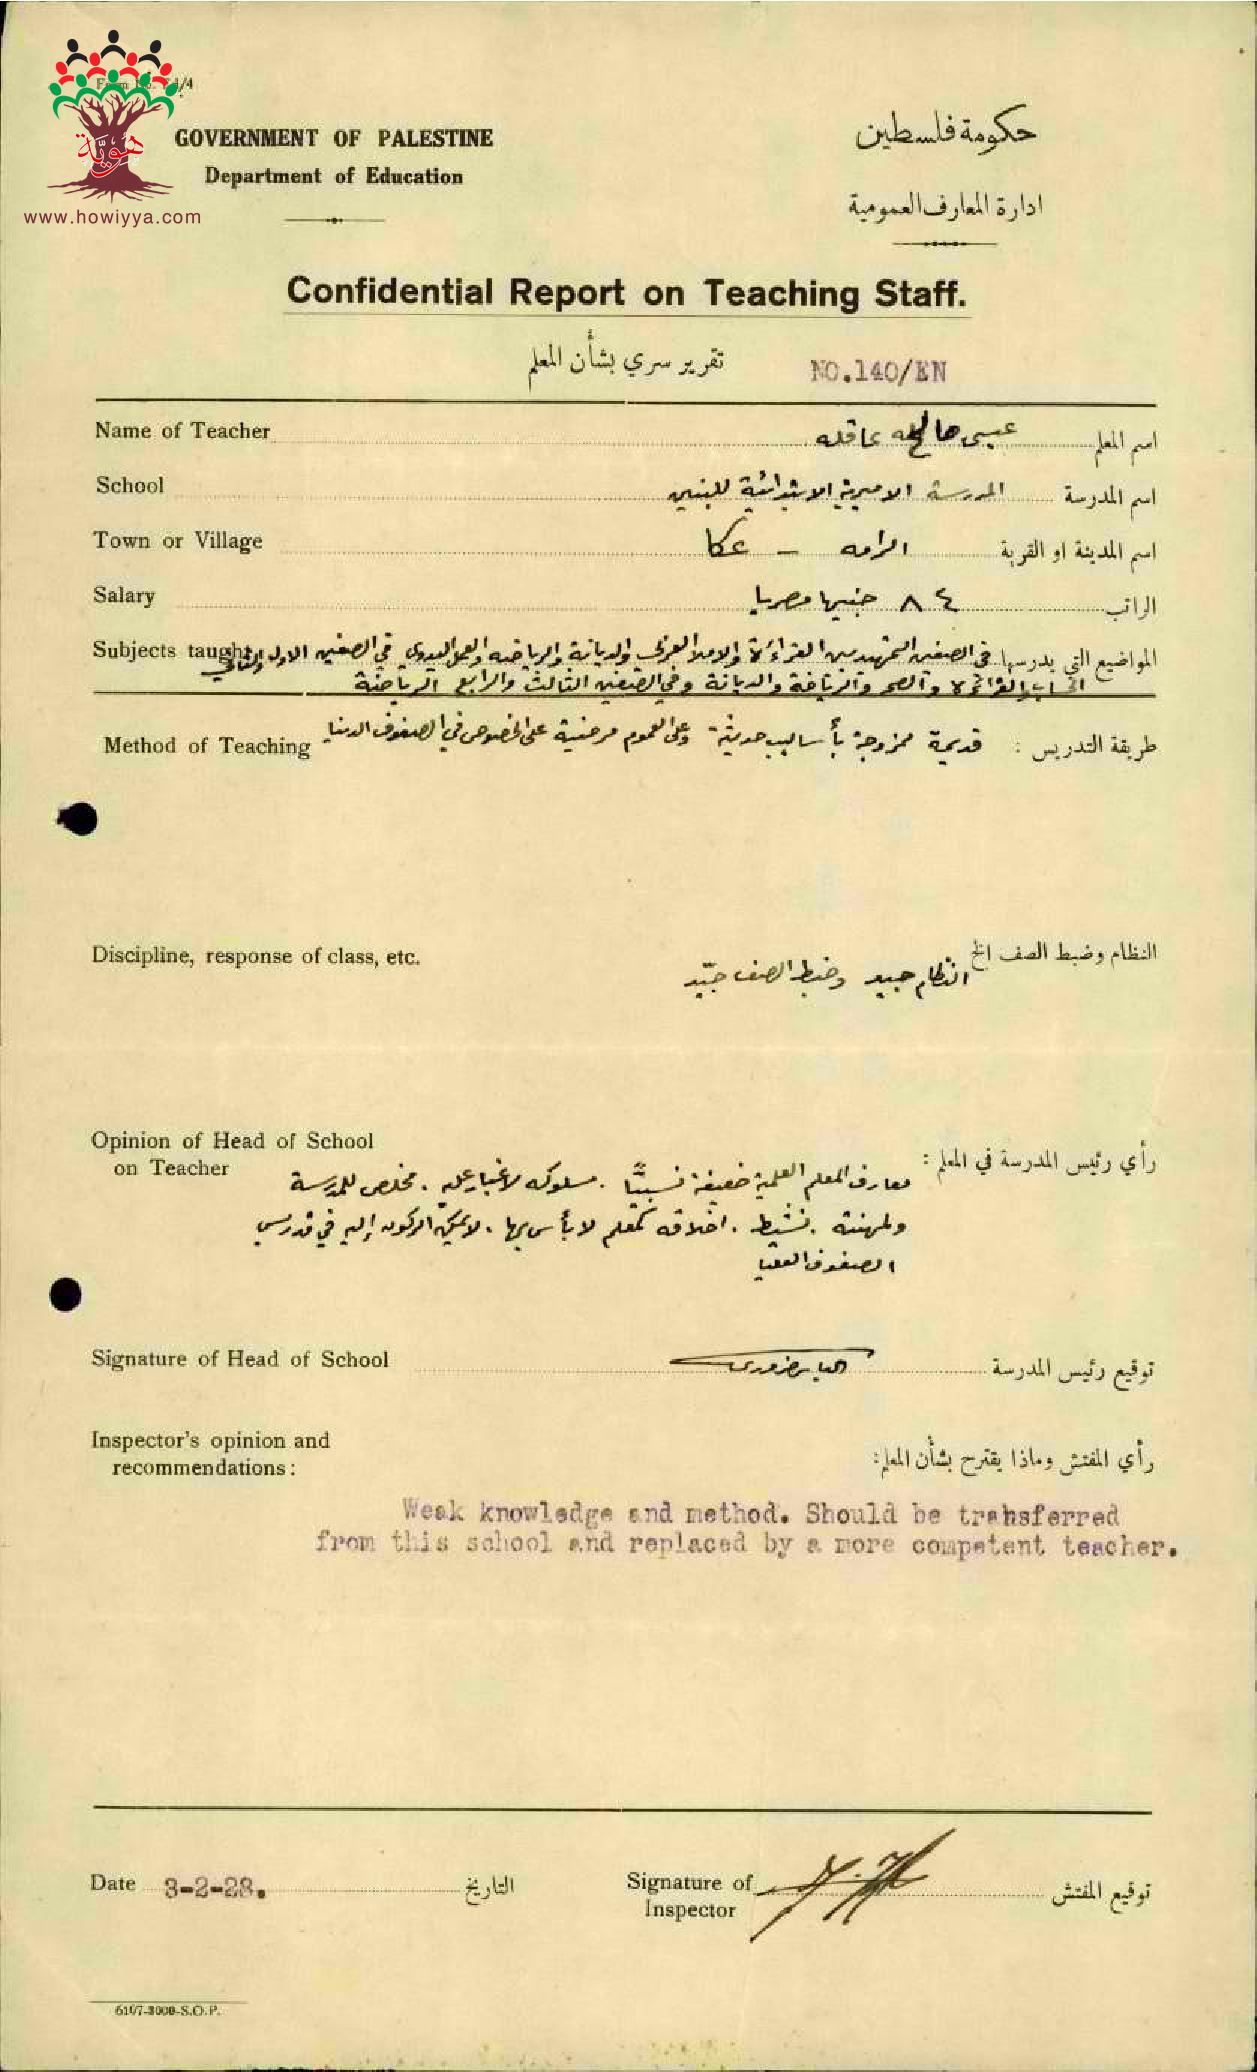 Form No. Ed/4
هويّة
www.howiyya.com
GOVERNMENT OF PALESTINE
Department of Education
حكومة فلسطين
ادارة المعارف العمومية
Confidential Report on Teaching Staff.
تقرير سري بشأن المعلم
NO.140/EN
Name of Teacher عيسى عاقله اسم المعلم
School المدرسة الاميرية الابتدائية للبنين اسم المدرسة
Town or Village الرامه - عكا اسم المدينة او القرية
Salary ٨٤ جنيها مصريا الراتب
Subjects taught المواضيع التي يدرسها في الصفين التمهيديين القراءة والاملاء العربي والديانة والرياضه والعمل اليدوي في الصفين الاول والثاني
والديانة وفي الصفين الثالث والرابع الرياضة
Method of Teaching طريقة التدريس : قديمة ممزوجة بأساليب حديثة وعلى العموم مرضية على الخصوص في الصفوف الدنيا
Discipline, response of class, etc. النظام وضبط الصف الخ
النظام جيد وضبط الصف جيّد
Opinion of Head of School
on Teacher
رأي رئيس المدرسة في المعلم :
معارف المعلم العلمية ضعيفة نسبيًّا . مسلوكه لاغبار عليه . مخلص للمدرسة
ولمهنته . نشيط . اخلاقه كمعلم لا بأس بها . لا يمكن الركون إليه في تدريس
الصفوف العليا
Signature of Head of School توقيع رئيس المدرسة
Inspector's opinion and
recommendations :
رأي المفتش وماذا يقترح بشأن المعلم:
Weak knowledge and method. Should be transferred
from this school and replaced by a more competent teacher.
Date 3-2-28. التاريخ
Signature of
Inspector
توقيع المفتش
6107-3000-S.O.P.